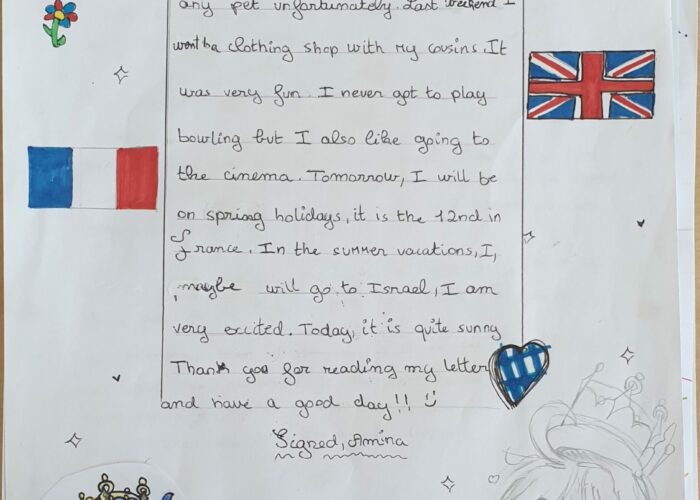 any pet unfortunately. Last weekend I
went to a clothing shop with my cousins. It
was very fun. I never got to play
bowling but I also like going to
the cinema. Tomorrow, I will be
on spring holidays, it is the 12nd in
france. In the summer vacations, I,
maybe will go to Israel, I am
very excited. Today, it is quite sunny
Thank you for reading my letter
and have a good day!! :)
Signed, Amina